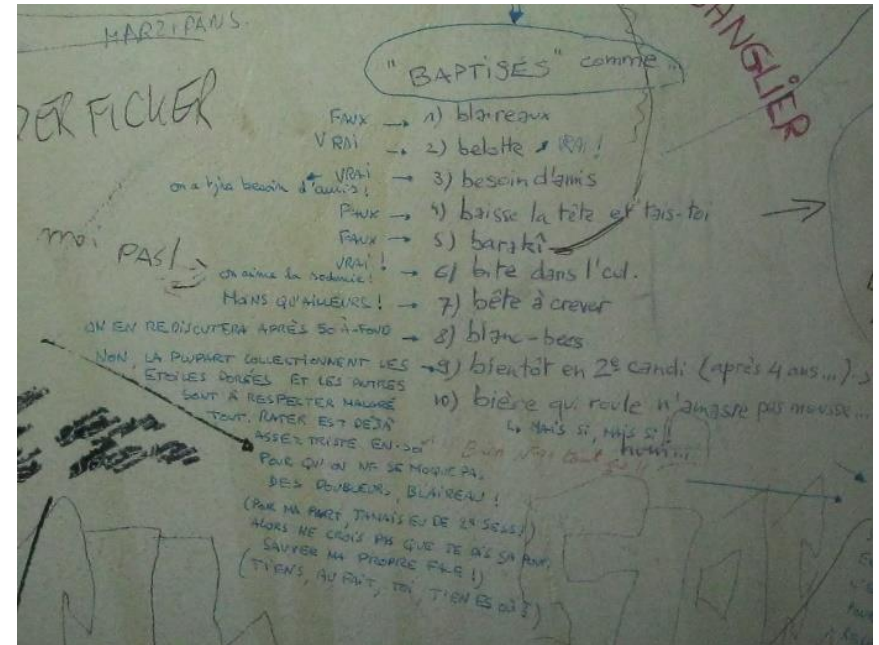 MARZIPANS.
SANGLIER
DER FICKER
"BAPTISÉS" comme...
FAUX → 1) blaireaux
VRAI → 2) belotte VRAI !
VRAI → 3) besoin d'amis
on a tjrs besoin d'amis !
FAUX → 4) baisse la tête et tais-toi →
FAUX → 5) barakî
moi PAS !
VRAI ! → 6) bite dans l'cul.
on aime la sodomie !
MOINS QU'AILLEURS ! → 7) bête à crever
ON EN REDISCUTERA APRÈS 50 À-FOND → 8) blanc-becs
NON, LA PLUPART COLLECTIONNENT LES → 9) bientôt en 2e candi (après 4 ans...)
ÉTOILES DORÉES ET LES AUTRES
SONT À RESPECTER MALGRÉ
TOUT. RATER EST DÉJÀ
ASSEZ TRISTE EN-SOI
POUR QU'ON NE SE MOQUE PAS,
DES DOUBLEURS, BLAIREAU !
(POUR MA PART, JAMAIS EU DE 2e SESS !)
ALORS NE CROIS PAS QUE JE DIS ÇA POUR
SAUVER MA PROPRE FACE !)
(TIENS, AU FAIT, TOI, T'EN ES OÙ ?)
10) bière qui roule n'amasse pas mousse...
↳ MAIS SI, MAIS SI !!